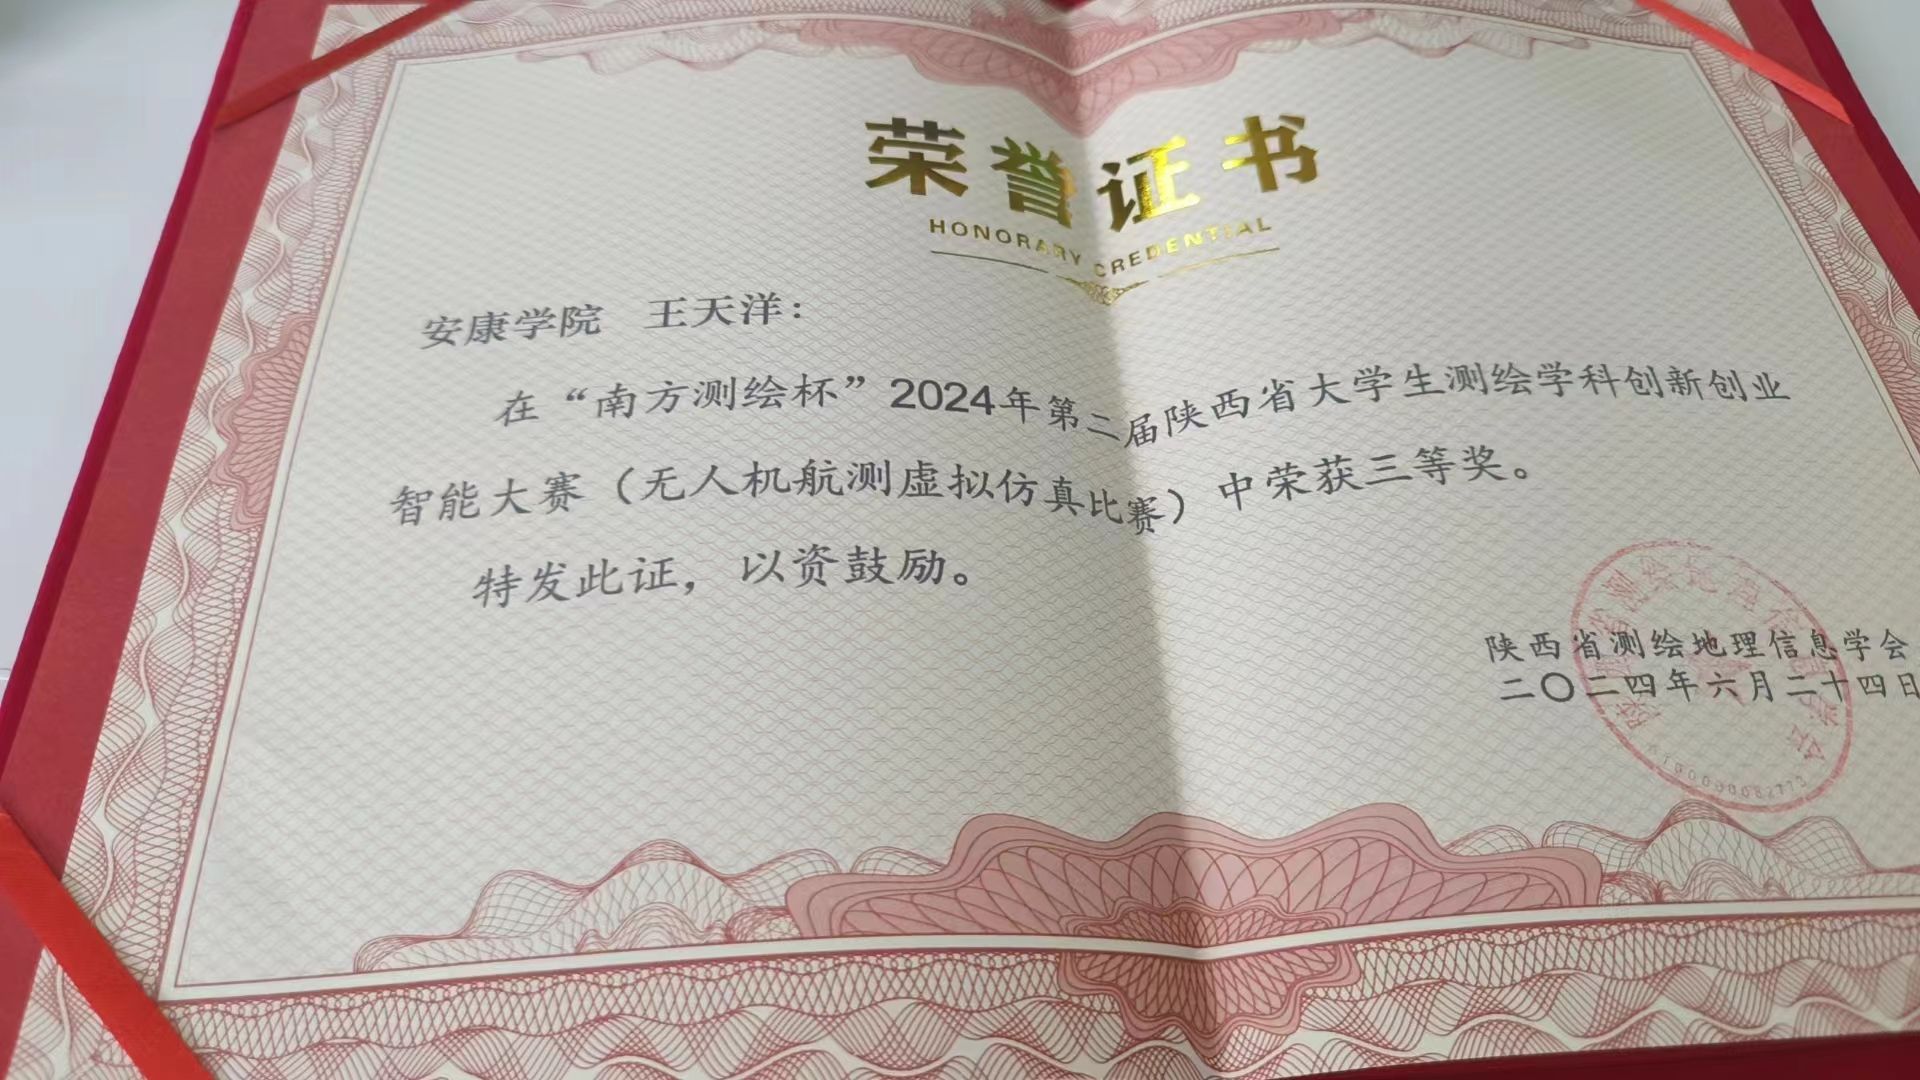 荣誉证书
HONORARY CREDENTIAL
安康学院 王天洋：
在“南方测绘杯”2024年第二届陕西省大学生测绘学科创新创业
智能大赛（无人机航测虚拟仿真比赛）中荣获三等奖。
特发此证，以资鼓励。
陕西省测绘地理信息学会
二〇二四年六月二十四日